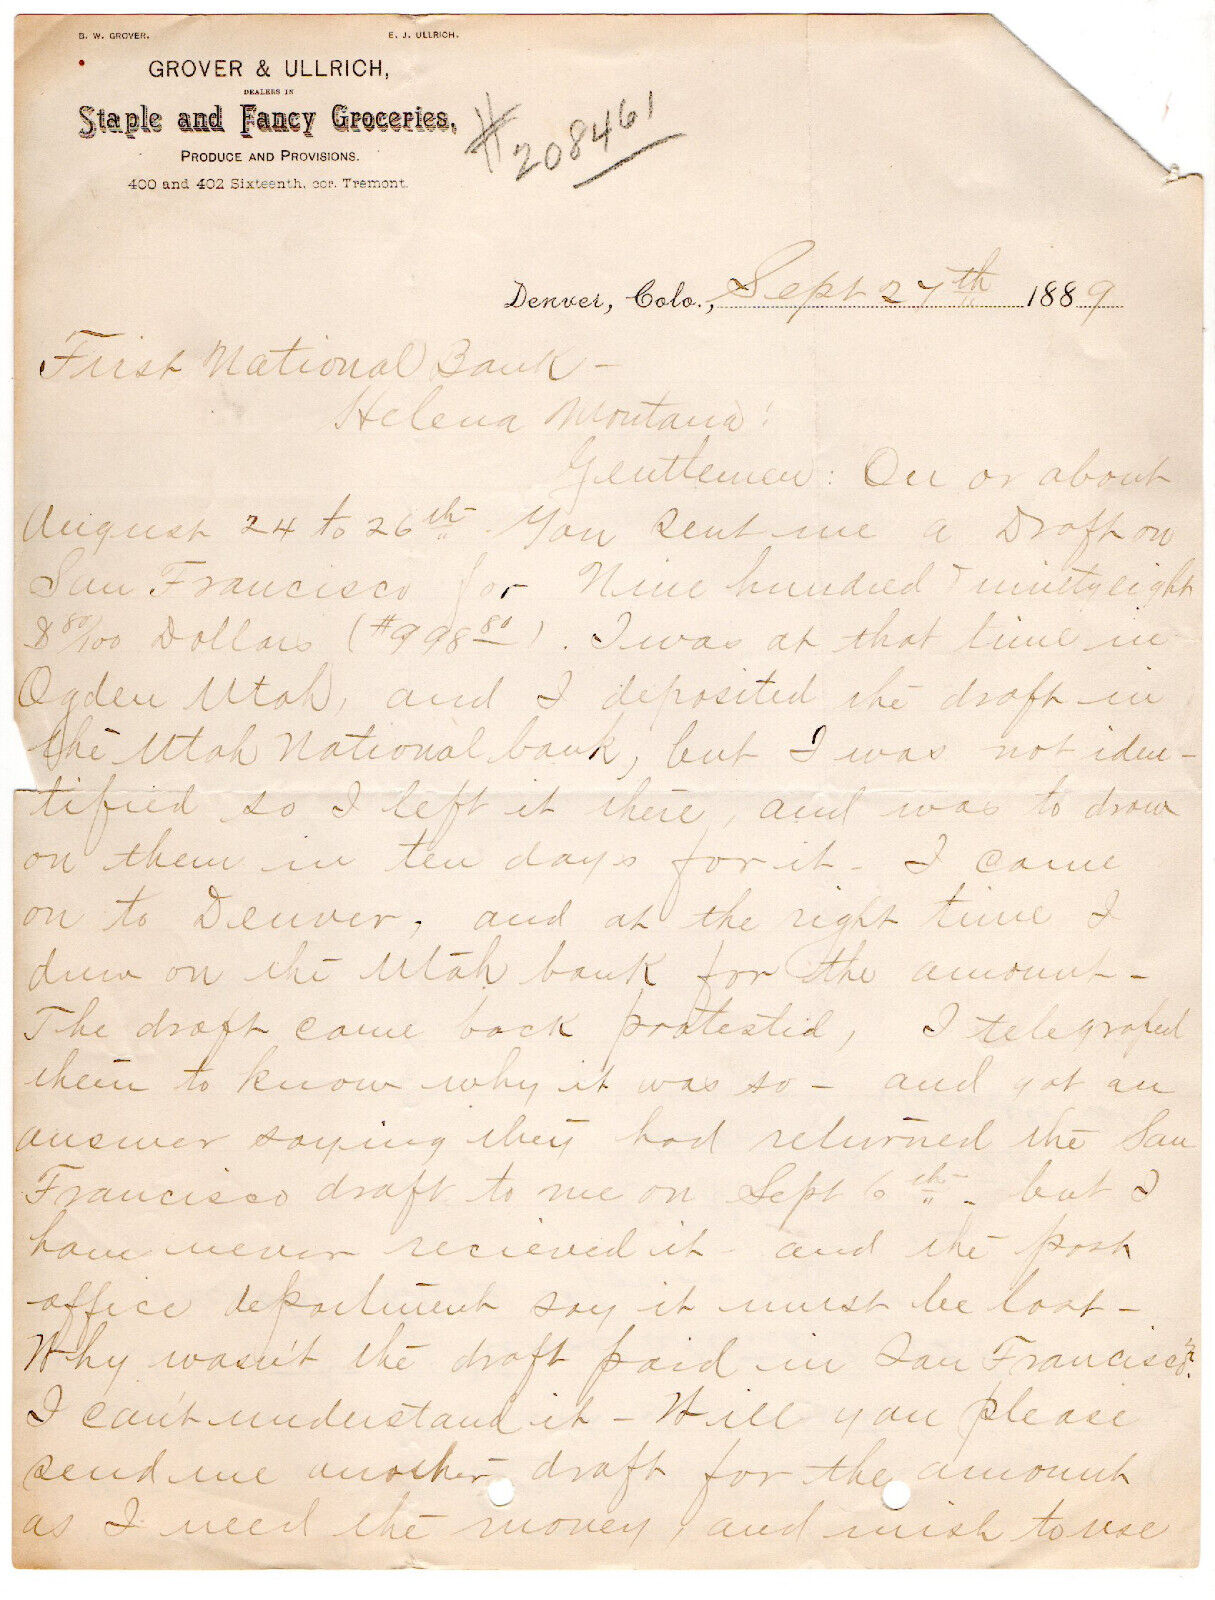 B. W. GROVER. E. J. ULLRICH.
GROVER & ULLRICH,
DEALERS IN
Staple and Fancy Groceries,
PRODUCE AND PROVISIONS.
400 and 402 Sixteenth, cor. Tremont.
# 208461
Denver, Colo., Sept 27th 1889
First National Bank –
Helena Montana!
Gentlemen: On or about
August 24 to 26th You sent me a Draft on
San Francisco for Nine hundred & ninety eight
& 80/100 Dollars (#998 80). I was at that time in
Ogden Utah, and I deposited the draft in
the Utah National bank, but I was not iden-
tified so I left it there, and was to draw
on them in ten days for it – I came
on to Denver, and at the right time I
drew on the Utah bank for the amount –
The draft came back protested, I telegraphed
them to know why it was so – and got an
answer saying they had returned the San
Francisco draft to me on Sept 6th – but I
have never recieved it – and the post
office department say it must be lost –
Why wasn't the draft paid in San Francisco?
I can't understand it – Will you please
send me another draft for the amount
as I need the money, and wish to use